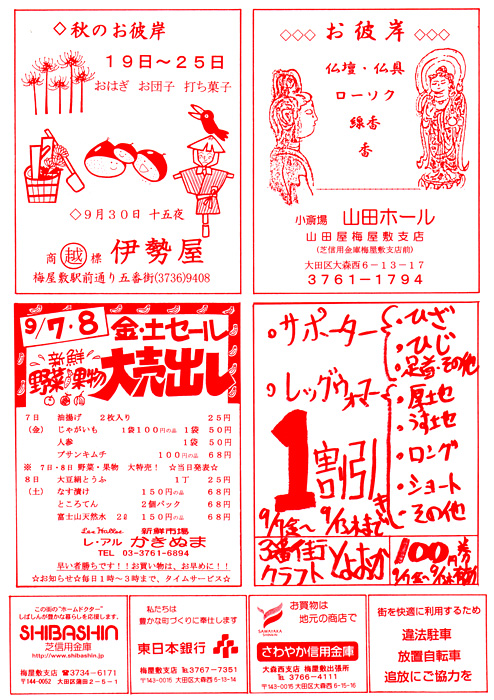 ◇秋のお彼岸
19日～25日
おはぎ お団子 打ち菓子
◇9月30日 十五夜
商 越 標 伊勢屋
梅屋敷駅前通り五番街(3736)9408
◇◇◇ お彼岸 ◇◇◇
仏壇・仏具
ローソク
線香
香
小斎場 山田ホール
山田屋梅屋敷支店
(芝信用金庫梅屋敷支店前)
大田区大森西6-13-17
3761-1794
9/7・8 金・土セール
新鮮 野菜・果物 大売出し
7日 油揚げ 2枚入り 25円
(金) じゃがいも 1袋100円の品 1袋 50円
人参 1袋 50円
ブサンキムチ 100円の品 68円
※ 7日・8日 野菜・果物 大特売! ☆当日発表☆
8日 大豆絹とうふ 1丁 25円
(土) なす漬け 150円の品 68円
ところてん 2個パック 68円
富士山天然水 2ℓ 150円の品 68円
Les Halles 新鮮市場
レ・アル かきぬま
TEL 03-3761-6894
早い者勝ちです!!お買い物は、お早めに!!
☆お知らせ☆毎日1時～3時まで、タイムサービス☆
○サポーター
・ひざ
・ひじ
・足首・その他
○レッグウォーマー
・厚土セ
・うす土セ
・ロング
・ショート
・その他
1割引
9/7金～9/13木まで
3番街
クラフト とよおか
100円券
この街の"ホームドクター"
しばしんが豊かな暮らしを応援します。
SHIBASHIN
芝信用金庫
http://www.shibashin.jp
梅屋敷支店 ☎3734-6171
〒144-0052 大田区蒲田2-5-1
私たちは
豊かな町づくりに奉仕します
東日本銀行
梅屋敷支店 ℡3767-7351
〒143-0015 大田区大森西6-13-14
お買物は
地元の商店で
SAWAYAKA
さわやか信用金庫
大森西支店 梅屋敷出張所
℡ 3766-4111
〒143-0015 大田区大森西6-15-16
街を快適に利用するため
違法駐車
放置自転車
追放にご協力を